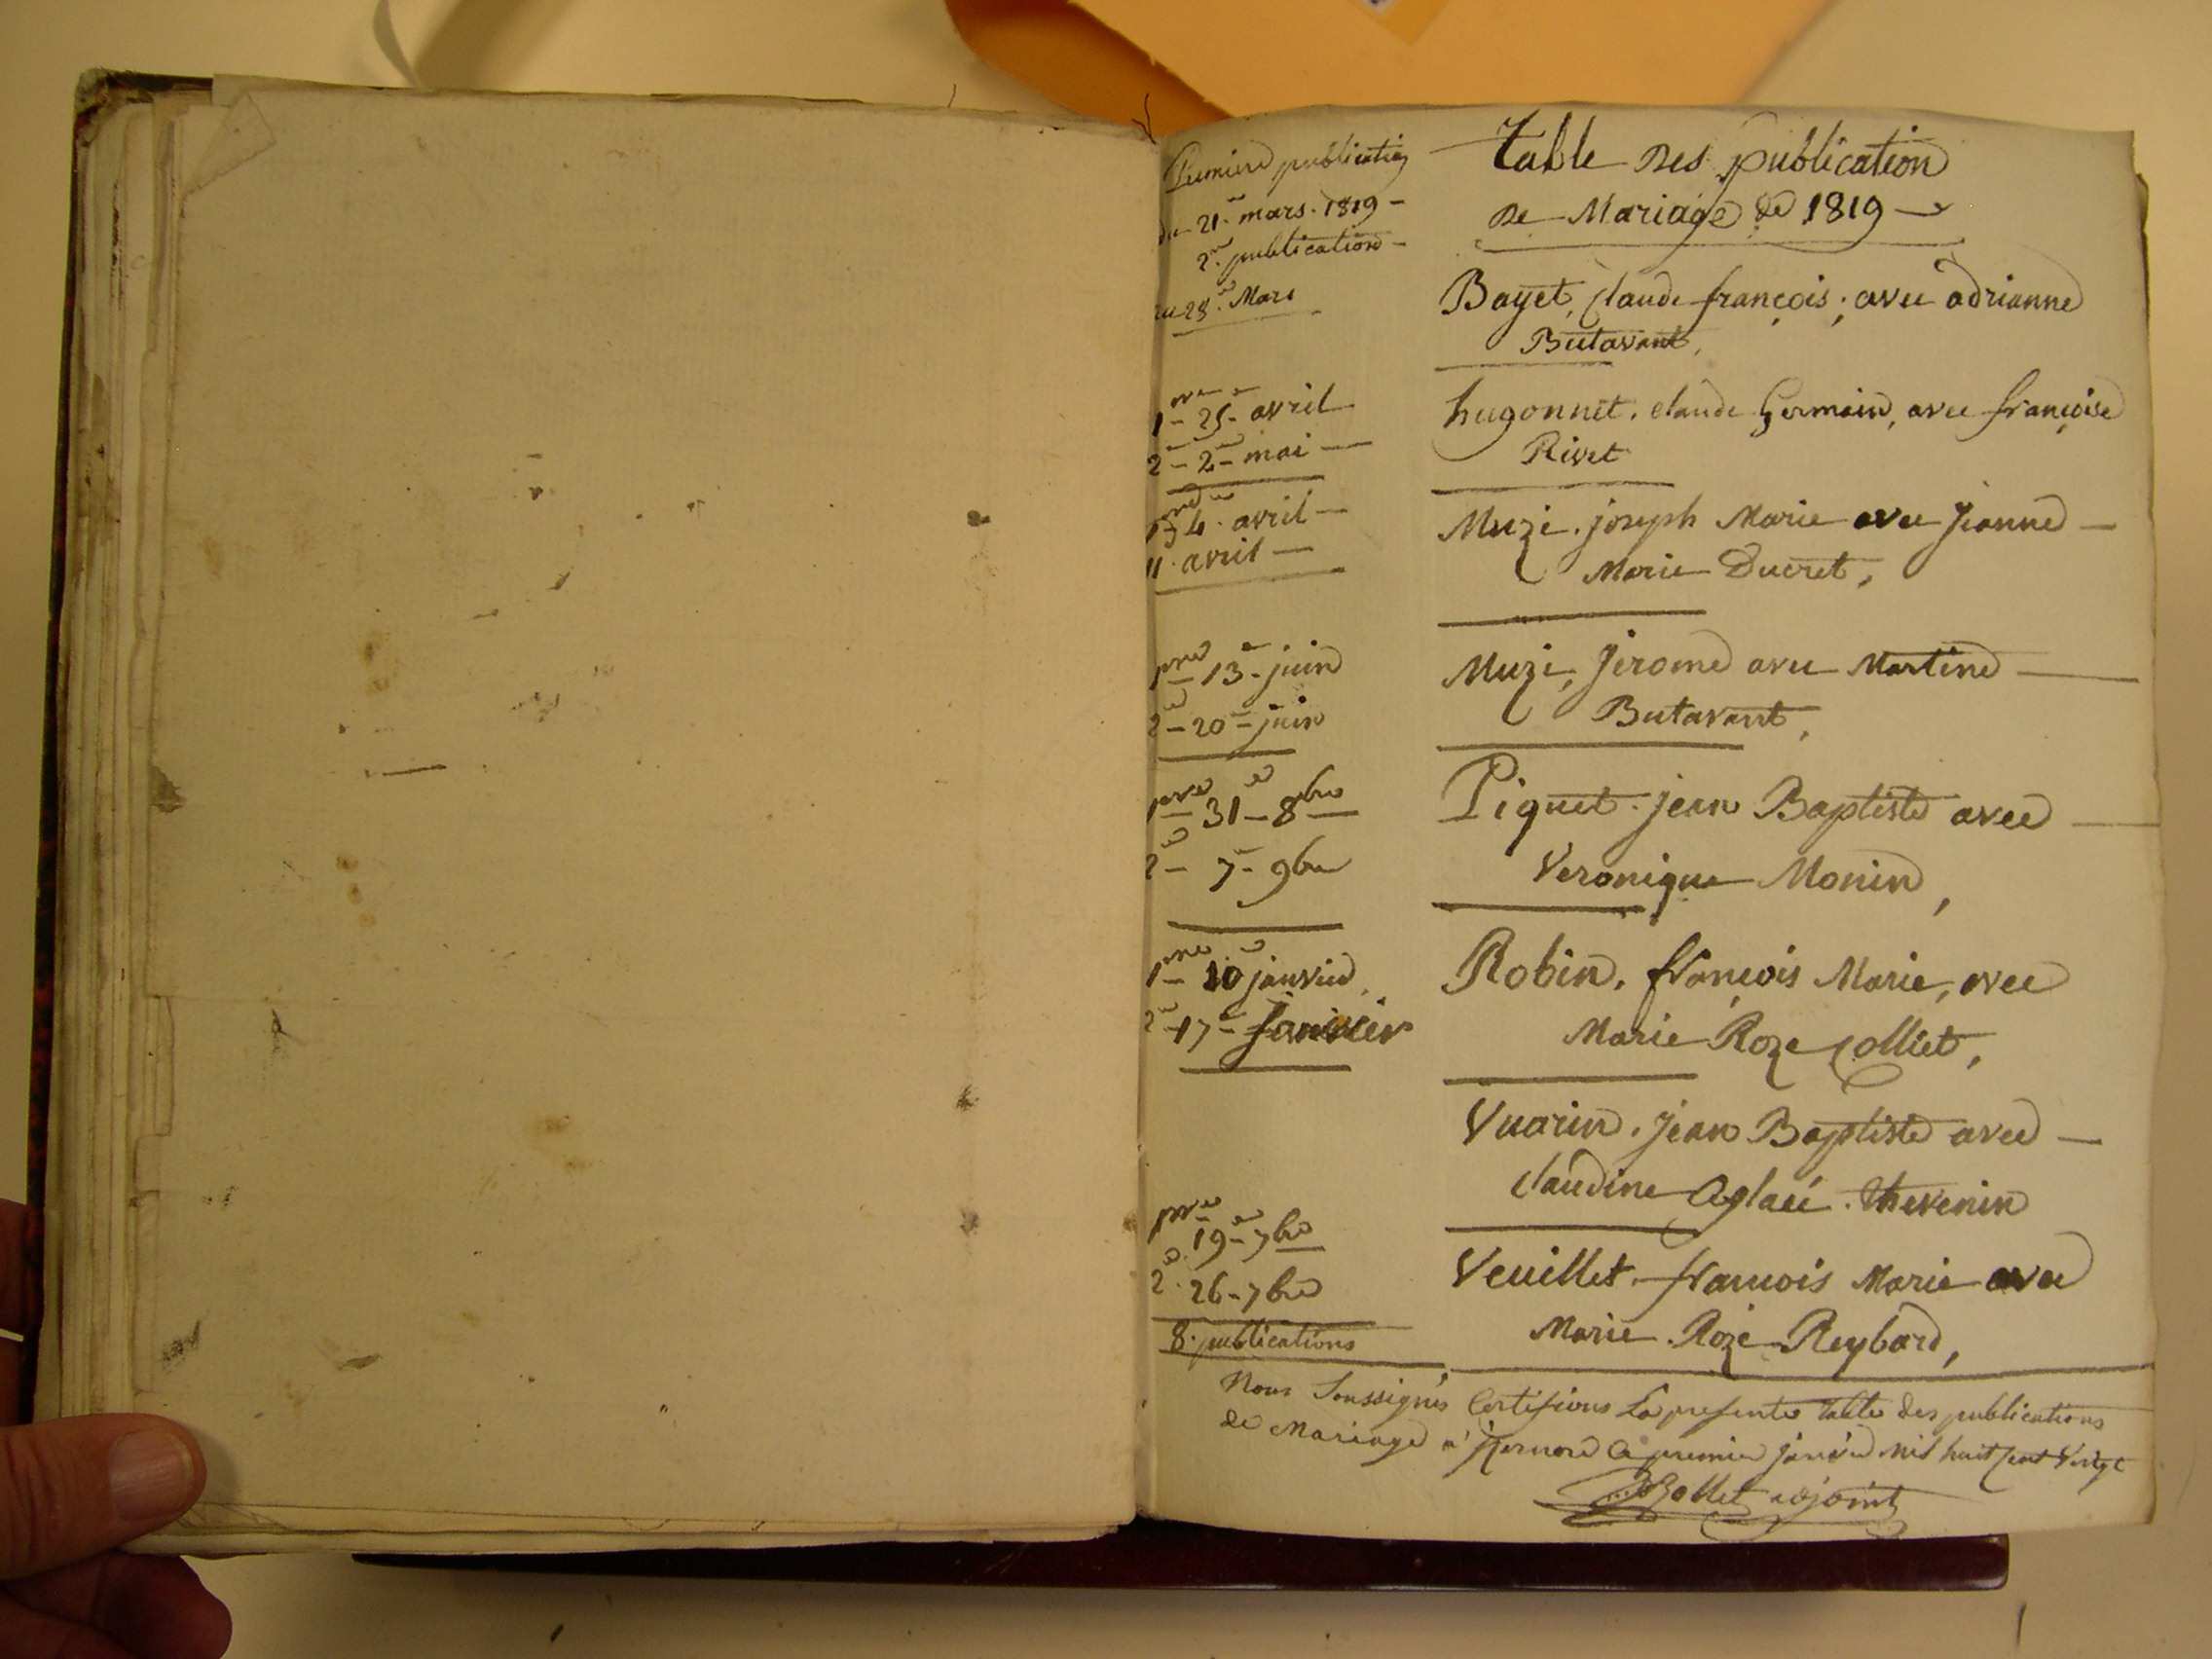 Premiere publication
du 21.e mars. 1819 -
2.e publication -
du 28.e Mars
1re - 25 - avril
2e - 2e - mai
1re 4. avril -
11. avril -
1re 13e - juin
2e - 20e - juin
1re 31e - 8bre
2e - 7e - 9bre
1re 10e janvier
2e - 17e - janvier
1re 19e - 7bre
2e. 26 - 7bre
8. publications
table Des publication
De Mariage de 1819
Bayet, Claude françois; avec adrianne
Butavant,
hugonnet. claude Germain, avec françoise
Rivet
Muzi. joseph Marie avec Jeanne -
Marie Ducret,
Muzi, Jerome avec Martine
Butavant,
Piquet. jean Baptiste avec
Veronique Monin,
Robin. françois Marie, avec
Marie Roze Colliet,
Vuarin. Jean Baptiste avec -
Claudine Aglaé. thevenin
Veuillet. francois Marie avec
Marie Roze Reybard,
Nous Soussignés Certifions La presente table des publications
de Mariage a Izernore Le premier janvier mil huit cent Vingt
adjoint